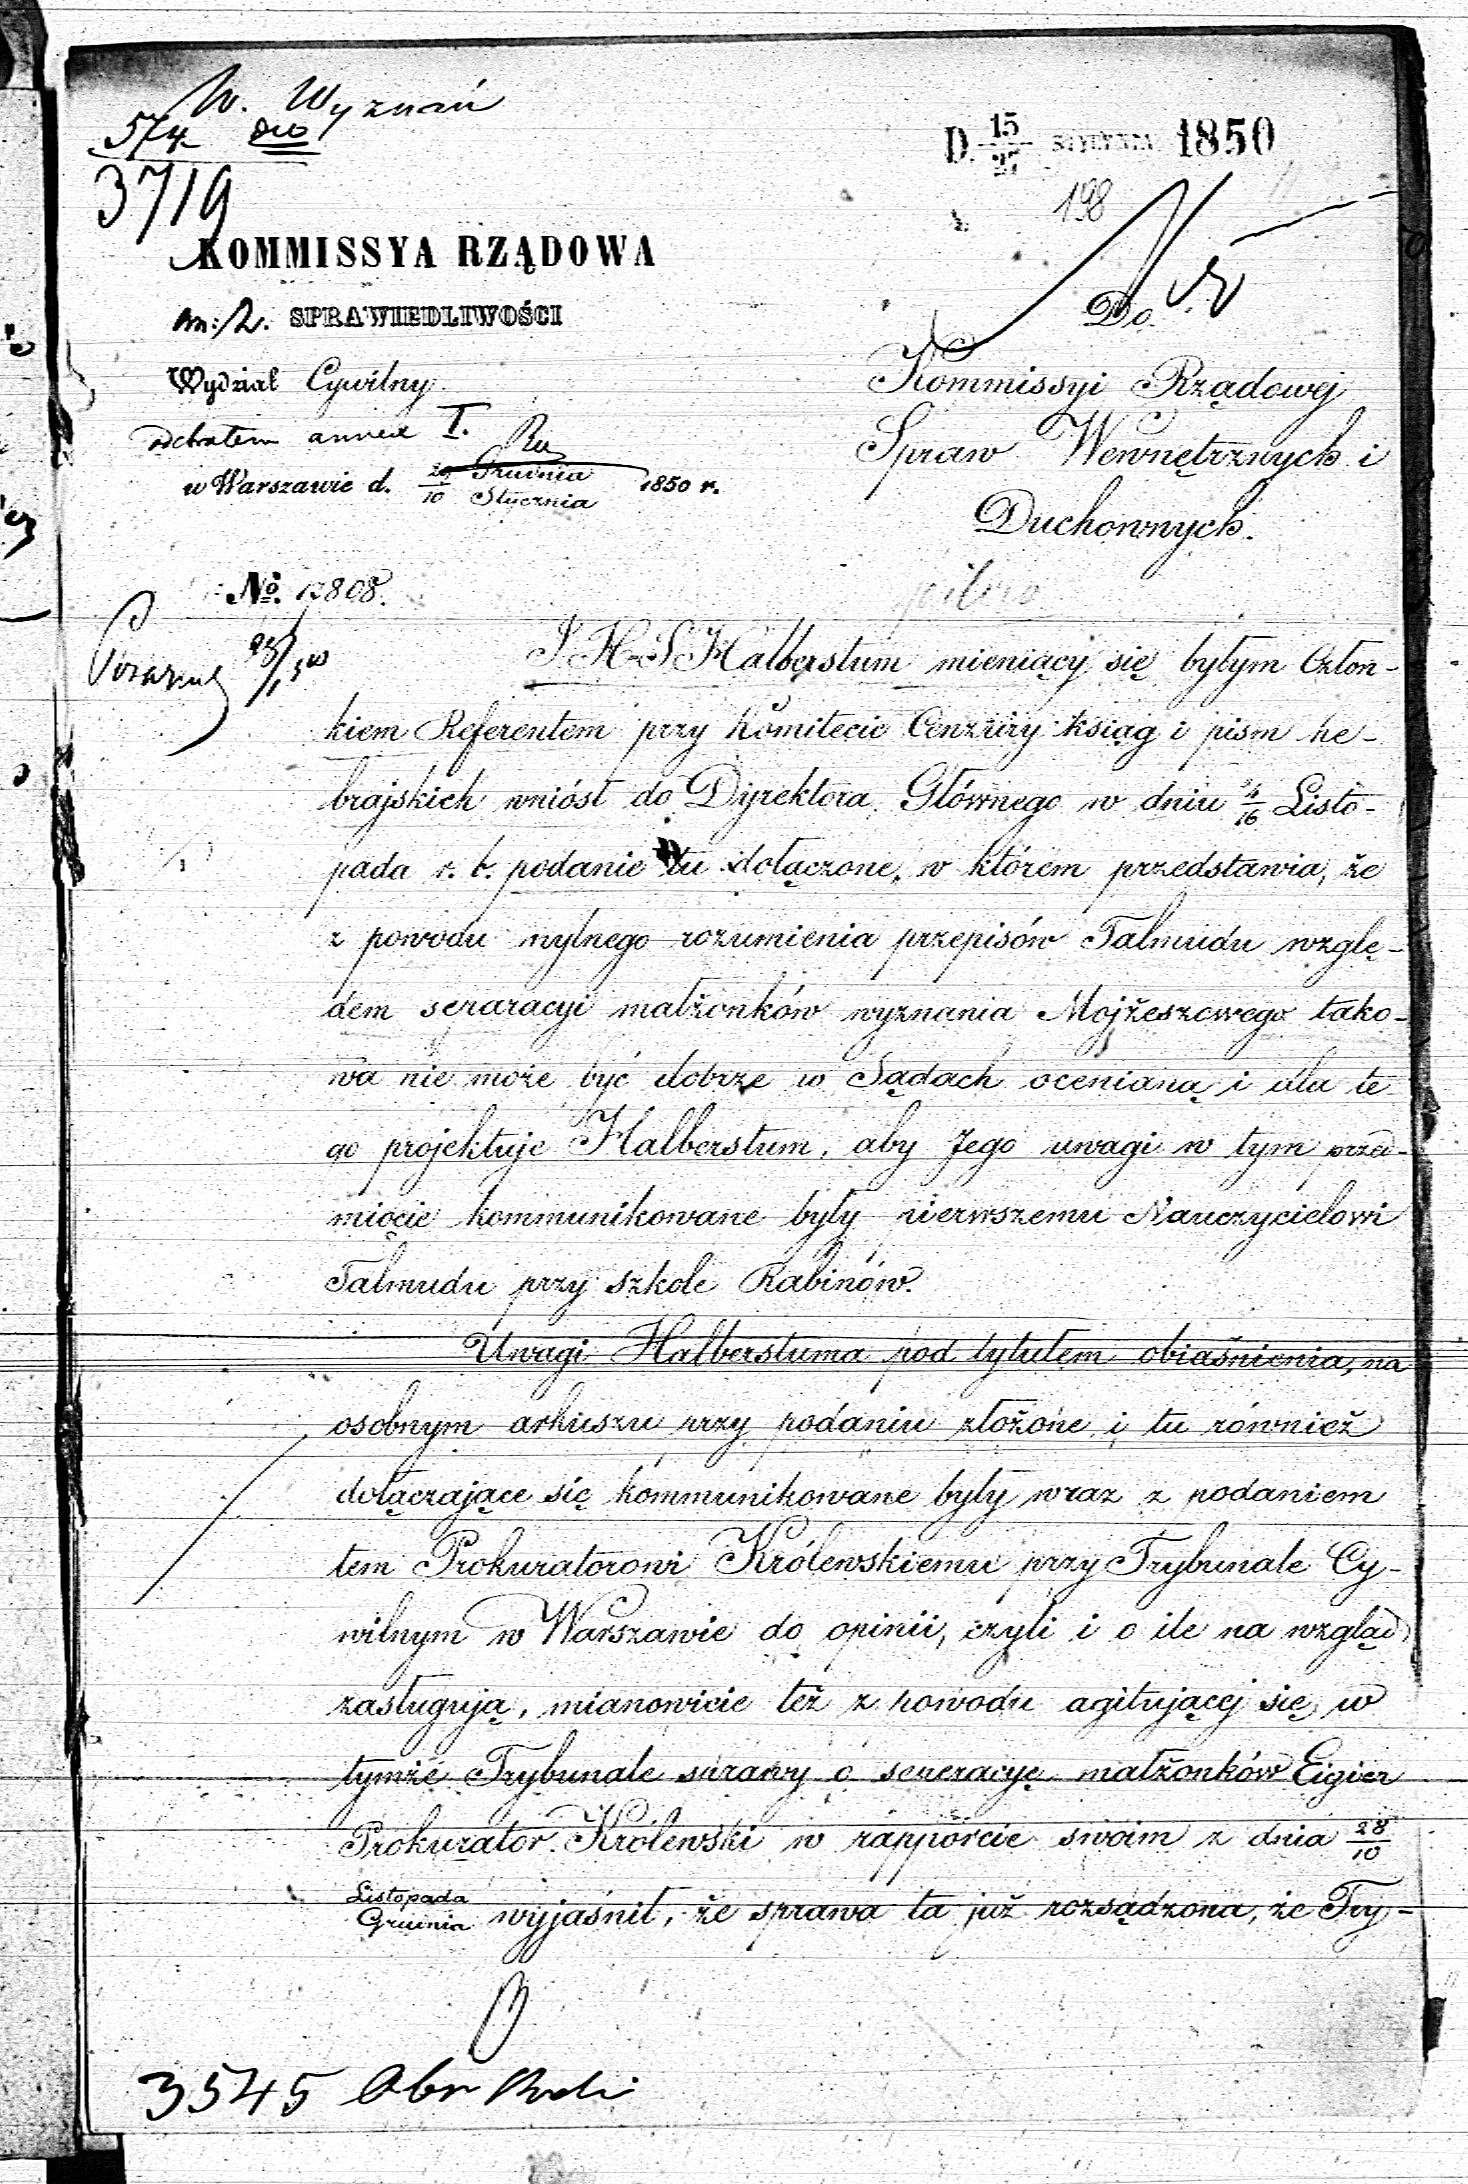 W. Wyznań
574
3719
D. 15/27 STYCZNIA 1850
198
KOMMISSYA RZĄDOWA
SPRAWIEDLIWOŚCI
Wydział Cywilny.
annex I.
w Warszawie d. 29/10 Grudnia/Stycznia 1850 r.
No. 12808.
Do.
Kommissyi Rządowej
Spraw Wewnętrznych i
Duchownych.
pilno
J. H. S. Halberstum mieniący się byłym Człon-
kiem Referentem przy Komitecie Cenzury ksiąg i pism he-
brajskich wniósł do Dyrektora Głównego w dniu 4/16 Listo-
pada r. b. podanie tu dołączone, w którem przedstawia, że
z powodu mylnego rozumienia przepisów Talmudu wzglę-
dem separacyi małżonków wyznania Mojżeszowego tako-
wa nie może być dobrze w Sądach ocenianą i dla te
go projektuje Halberstum, aby Jego uwagi w tym przed-
miocie kommunikowane były pierwszemu Nauczycielowi
Talmudu przy szkole Rabinów.
Uwagi Halberstuma pod tytułem obiaśnienia, na
osobnym arkuszu przy podaniu złożone i tu również
dołączające się kommunikowane były wraz z podaniem
tem Prokuratorowi Królewskiemu przy Trybunale Cy-
wilnym w Warszawie do opinii, czyli i o ile na wzgląd
zasługują, mianowicie też z powodu agitującej się w
tymże Trybunale sprawy o seperacyę małżonków Eigier
Prokurator Królewski w rapporcie swoim z dnia 28/10
Listopada/Grudnia wyjaśnił, że sprawa ta już rozsądzona, że Try-
3545